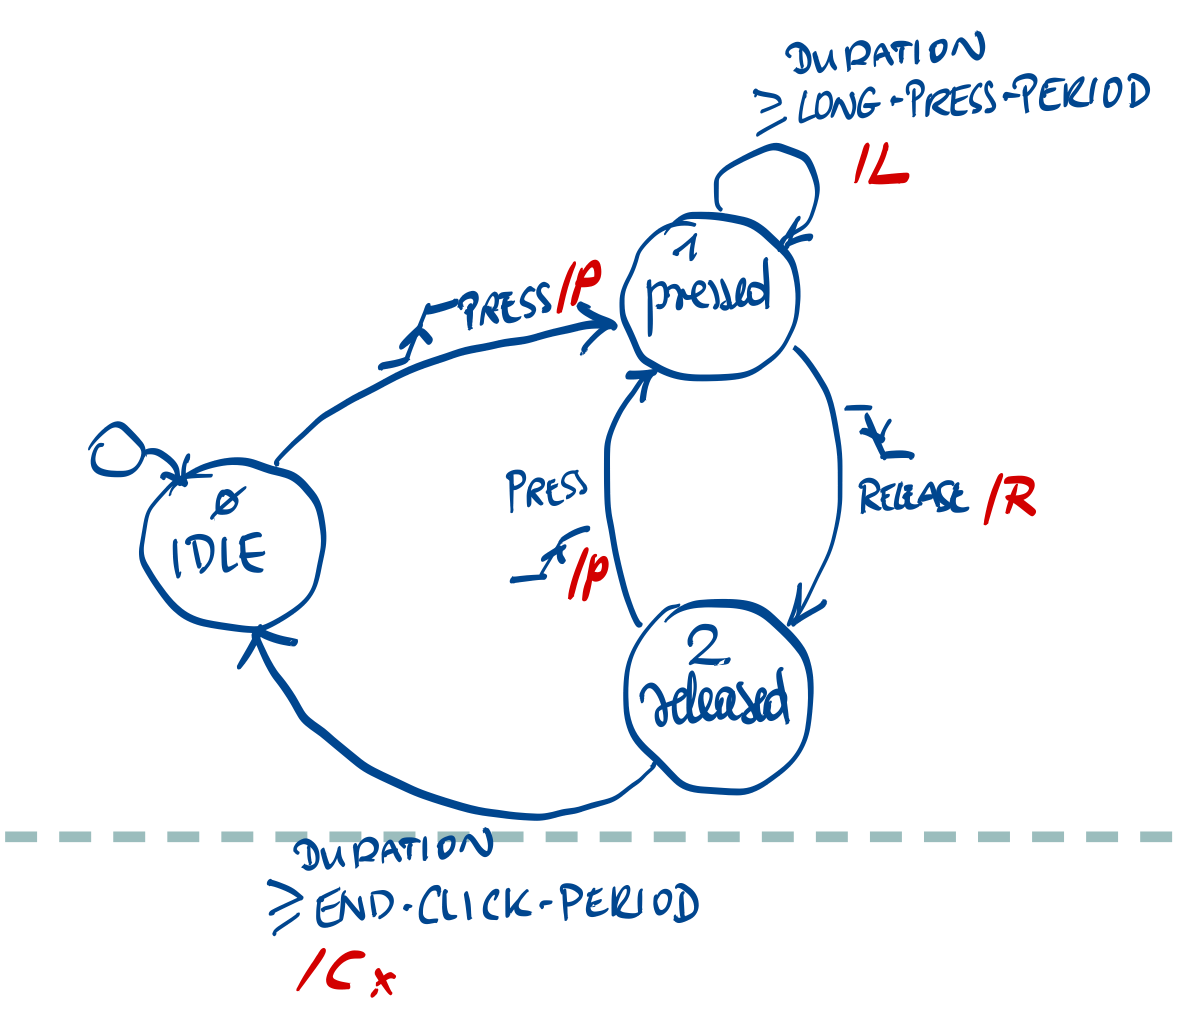 DURATION
≥ LONG-PRESS-PERIOD
/L
1
pressed
PRESS /P
RELEASE /R
PRESS
/P
Ø
IDLE
2
released
DURATION
≥ END-CLICK-PERIOD
/Cx